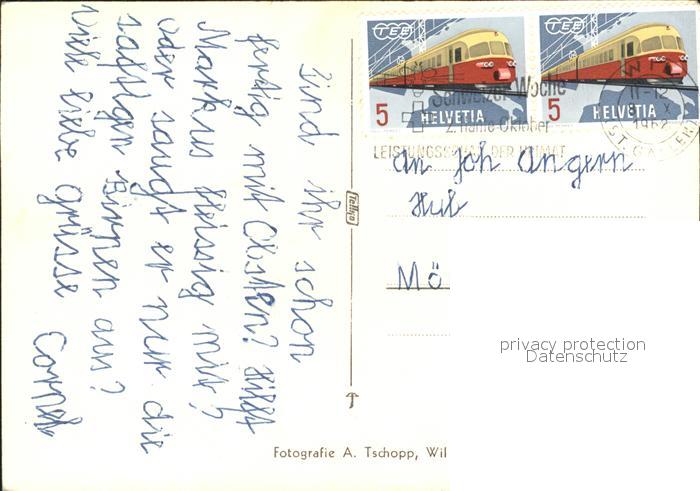 Sind ihr schon
fertig mit Obsten? Hilft
Markus fleissig mit?
oder saugt er nur die
saftigen Birnen aus?
Viele liebe Grüsse
TEE
5
HELVETIA
TEE
5
HELVETIA
Schweizer Woche
2. Hälfte Oktober
LEISTUNGSSCHAU DER HEIMAT
WIL
11-12
1962
ST. GALLEN
An Joh Angern
Hub
Mö
Tellko
privacy protection
Datenschutz
Fotografie A. Tschopp, Wil